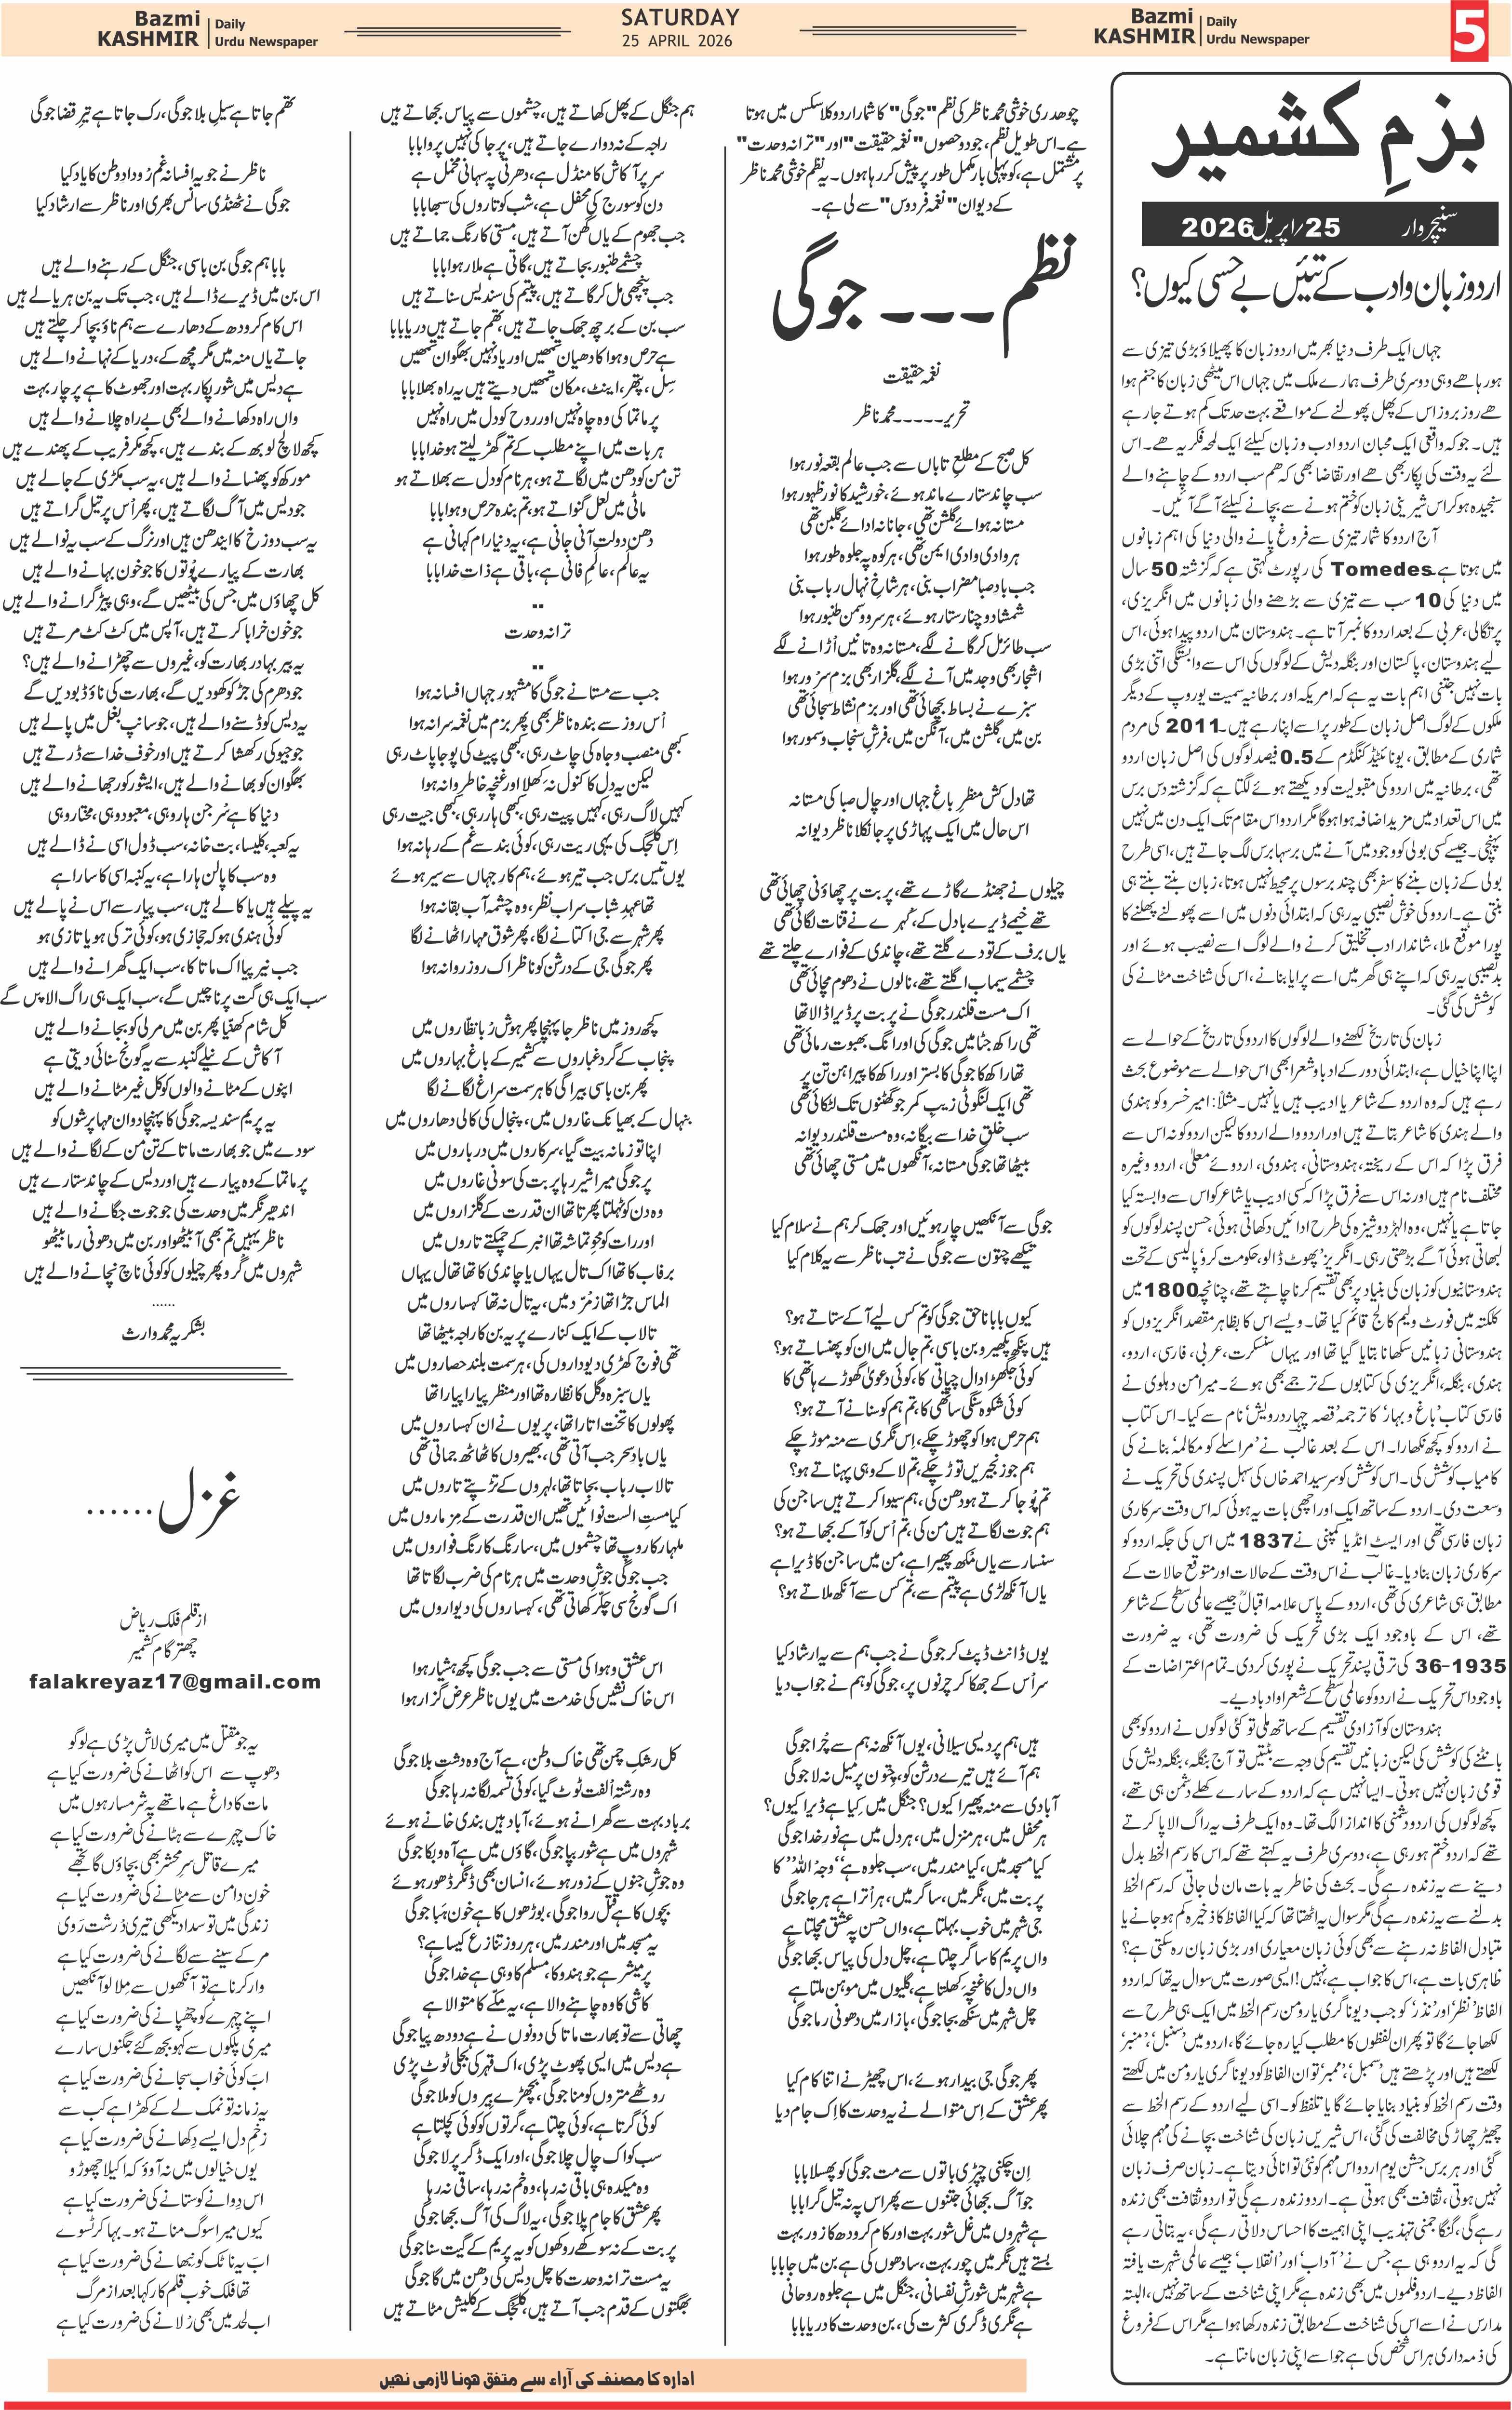 Bazmi KASHMIR Daily Urdu Newspaper
SATURDAY
25 APRIL 2026
Bazmi KASHMIR Daily Urdu Newspaper
5
بزمِ کشمیر
سنیچروار 25/اپریل 2026
اردو زبان و ادب کے تئیں بے حسی کیوں؟
جہاں ایک طرف دنیا بھر میں اردو زبان کا پھیلاؤ بڑی تیزی سے
ہورہا ھے وہی دوسری طرف ہمارے ملک میں جہاں اس میٹھی زبان کا جنم ہوا
ھے روز بروز اس کے پھل پھولنے کے مواقعے بہت حد تک کم ہوتے جارہے
ہیں۔ جوکہ واقعی ایک محبان اردو ادب و زبان کیلئے ایک لمحہ فکریہ ھے۔ اس
لئے یہ وقت کی پکار بھی ھے اور تقاضا بھی کہ ھم سب اردو کے چاہنے والے
سنجیدہ ہوکر اس شیرینی زبان کو ختم ہونے سے بچانے کیلئے آگے آئیں۔
آج اردو کا شمار تیزی سے فروغ پانے والی دنیا کی اہم زبانوں
میں ہوتا ہے۔Tomedes کی رپورٹ کہتی ہے کہ گزشتہ 50 سال
میں دنیا کی 10 سب سے تیزی سے بڑھنے والی زبانوں میں انگریزی،
پرتگالی، عربی کے بعد اردو کا نمبر آتا ہے۔ ہندوستان میں اردو پیدا ہوئی، اس
لیے ہندوستان، پاکستان اور بنگلہ دیش کے لوگوں کی اس سے وابستگی اتنی بڑی
بات نہیں جتنی اہم بات یہ ہے کہ امریکہ اور برطانیہ سمیت یوروپ کے دیگر
ملکوں کے لوگ اصل زبان کے طور پر اسے اپنا رہے ہیں۔ 2011 کی مردم
شماری کے مطابق، یونائیٹیڈ کنگڈم کے 0.5 فیصد لوگوں کی اصل زبان اردو
تھی، برطانیہ میں اردو کی مقبولیت کو دیکھتے ہوئے لگتا ہے کہ گزشتہ دس برس
میں اس تعداد میں مزید اضافہ ہوا ہوگا مگر اردو اس مقام تک ایک دن میں نہیں
پہنچی۔ جیسے کسی بولی کو وجود میں آنے میں برسہا برس لگ جاتے ہیں، اسی طرح
بولی کے زبان بننے کا سفر بھی چند برسوں پر محیط نہیں ہوتا، زبان بنتے بنتے ہی
بنتی ہے۔ اردو کی خوش نصیبی یہ رہی کہ ابتدائی دنوں میں اسے پھولنے پھلنے کا
پورا موقع ملا، شاندار ادب تخلیق کرنے والے لوگ اسے نصیب ہوئے اور
بدنصیبی یہ رہی کہ اپنے ہی گھر میں اسے پرایا بنانے، اس کی شناخت مٹانے کی
کوشش کی گئی۔
زبان کی تاریخ لکھنے والے لوگوں کا اردو کی تاریخ کے حوالے سے
اپنا اپنا خیال ہے، ابتدائی دور کے ادبا و شعرا بھی اس حوالے سے موضوع بحث
رہے ہیں کہ وہ اردو کے شاعر یا ادیب ہیں یا نہیں۔ مثلاً: امیر خسرو کو ہندی
والے ہندی کا شاعر بتاتے ہیں اور اردو والے اردو کا لیکن اردو کو نہ اس سے
فرق پڑا کہ اس کے ریختہ، ہندوستانی، ہندوی، اردوئے معلیٰ، اردو وغیرہ
مختلف نام ہیں اور نہ اس سے فرق پڑا کہ کسی ادیب یا شاعر کو اس سے وابستہ کیا
جاتا ہے یا نہیں، وہ الہڑ دوشیزہ کی طرح ادائیں دکھاتی ہوئی، حسن پسند لوگوں کو
لبھاتی ہوئی آگے بڑھتی رہی۔ انگریز ’پھوٹ ڈالو، حکومت کرو‘ پالیسی کے تحت
ہندوستانیوں کو زبان کی بنیاد پر بھی تقسیم کرنا چاہتے تھے، چنانچہ 1800 میں
کلکتہ میں فورٹ ولیم کالج قائم کیا تھا۔ ویسے اس کا بظاہر مقصد انگریزوں کو
ہندوستانی زبانیں سکھانا بتایا گیا تھا اور یہاں سنسکرت، عربی، فارسی، اردو،
ہندی، بنگلہ، انگریزی کی کتابوں کے ترجمے بھی ہوئے۔ میر امن دہلوی نے
فارسی کتاب ’باغ و بہار‘ کا ترجمہ ’قصہ چہار درویش‘ نام سے کیا۔ اس کتاب
نے اردو کو کچھ نکھارا۔ اس کے بعد غالبؔ نے ’مراسلے کو مکالمہ‘ بنانے کی
کامیاب کوشش کی۔ اس کوشش کو سرسید احمد خاں کی سہل پسندی کی تحریک نے
وسعت دی۔ اردو کے ساتھ ایک اور اچھی بات یہ ہوئی کہ اس وقت سرکاری
زبان فارسی تھی اور ایسٹ انڈیا کمپنی نے 1837 میں اس کی جگہ اردو کو
سرکاری زبان بنا دیا۔ غالبؔ نے اس وقت کے حالات اور متوقع حالات کے
مطابق ہی شاعری کی تھی، اردو کے پاس علامہ اقبالؒ جیسے عالمی سطح کے شاعر
تھے، اس کے باوجود ایک بڑی تحریک کی ضرورت تھی، یہ ضرورت
1935-36 کی ترقی پسند تحریک نے پوری کردی۔ تمام اعتراضات کے
باوجود اس تحریک نے اردو کو عالمی سطح کے شعرا و ادبا دیے۔
ہندوستان کو آزادی تقسیم کے ساتھ ملی تو کئی لوگوں نے اردو کو بھی
بانٹنے کی کوشش کی لیکن زبانیں تقسیم کی وجہ سے بٹتیں تو آج بنگلہ، بنگلہ دیش کی
قومی زبان نہیں ہوتی۔ ایسا نہیں ہے کہ اردو کے سارے کھلے دشمن ہی تھے،
کچھ لوگوں کی اردو دشمنی کا انداز الگ تھا۔ وہ ایک طرف یہ راگ الاپا کرتے
تھے کہ اردو ختم ہورہی ہے، دوسری طرف یہ کہتے تھے کہ اس کا رسم الخط بدل
دینے سے یہ زندہ رہے گی۔ بحث کی خاطر یہ بات مان لی جاتی کہ رسم الخط
بدلنے سے یہ زندہ رہے گی مگر سوال یہ اٹھتا تھا کہ کیا الفاظ کا ذخیرہ کم ہوجانے یا
متبادل الفاظ نہ رہنے سے بھی کوئی زبان معیاری اور بڑی زبان رہ سکتی ہے؟
ظاہر سی بات ہے، اس کا جواب ہے، نہیں! ایسی صورت میں سوال یہ تھا کہ اردو
الفاظ ’نظر‘ اور ’نذر‘ کو جب دیوناگری یا رومن رسم الخط میں ایک ہی طرح سے
لکھا جائے گا تو پھر ان لفظوں کا مطلب کیا رہ جائے گا، اردو میں ’سنبل‘، ’منبر‘
لکھتے ہیں اور پڑھتے ہیں ’سمبل‘، ’ممبر‘ تو ان الفاظ کو دیوناگری یا رومن میں لکھتے
وقت رسم الخط کو بنیاد بنایا جائے گا یا تلفظ کو۔ اسی لیے اردو کے رسم الخط سے
چھیڑ چھاڑ کی مخالفت کی گئی، اس شیریں زبان کی شناخت بچانے کی مہم چلائی
گئی اور ہر برس جشن یوم اردو اس مہم کو نئی توانائی دیتا ہے۔ زبان صرف زبان
نہیں ہوتی، ثقافت بھی ہوتی ہے۔ اردو زندہ رہے گی تو اردو ثقافت بھی زندہ
رہے گی، گنگا جمنی تہذیب اپنی اہمیت کا احساس دلاتی رہے گی، یہ بتاتی رہے
گی کہ یہ اردو ہی ہے جس نے ’آداب‘ اور ’انقلاب‘ جیسے عالمی شہرت یافتہ
الفاظ دیے۔ اردو فلموں میں بھی زندہ ہے مگر اپنی شناخت کے ساتھ نہیں، البتہ
مدارس نے اسے اس کی شناخت کے مطابق زندہ رکھا ہوا ہے مگر اس کے فروغ
کی ذمہ داری ہر اس شخص کی ہے جو اسے اپنی زبان مانتا ہے۔
چوھدری خوشی محمد ناظر کی نظم "جوگی" کا شمار اردو کلاسکس میں ہوتا
ہے۔ اس طویل نظم، جو دو حصوں "نغمہ حقیقت" اور "ترانہ وحدت"
پر مشتمل ہے، کو پہلی بار مکمل طور پر پیش کر رہا ہوں۔ یہ نظم خوشی محمد ناظر
کے دیوان "نغمہ فردوس" سے لی ہے۔
نظم ۔۔۔ جوگی
نغمہ حقیقت
تحریر۔۔۔۔۔محمد ناظر
کل صبح کے مطلعِ تاباں سے جب عالم بقعہ نور ہوا
سب چاند ستارے ماند ہوئے، خورشید کا نور ظہور ہوا
مستانہ ہوائے گلشن تھی، جانانہ ادائے گلبن تھی
ہر وادی وادی ایمن تھی، ہر کوہ پہ جلوہ طور ہوا
جب باد صبا مضراب بنی، ہر شاخِ نہال رباب بنی
شمشاد و چنار ستار ہوئے، ہر سرو و سمن طنبور ہوا
سب طائر مل کر گانے لگے، مستانہ وہ تانیں اُڑانے لگے
اشجار بھی وجد میں آنے لگے، گلزار بھی بزم سرُور ہوا
سبزے نے بساط بچھائی تھی اور بزم نشاط سجائی تھی
بن میں، گلشن میں، آنگن میں، فرشِ سنجاب و سمور ہوا
تھا دل کش منظرِ باغ جہاں اور چال صبا کی مستانہ
اس حال میں ایک پہاڑی پر جا نکلا ناظر دیوانہ
چیلوں نے جھنڈے گاڑے تھے، پربت پر چھاؤنی چھائی تھی
تھے خیمے ڈیرے بادل کے، کُہرے نے قنات لگائی تھی
یاں برف کے تودے گلتے تھے، چاندی کے فوارے چلتے تھے
چشمے سیماب اگلتے تھے، نالوں نے دھوم مچائی تھی
اک مست قلندر جوگی نے پربت پر ڈیرا ڈالا تھا
تھی راکھ جٹا میں جوگی کی اور انگ بھبوت رمائی تھی
تھا راکھ کا جوگی کا بستر اور راکھ کا پیراہن تن پر
تھی ایک لنگوٹی زیبِ کمر جو گھٹنوں تک لٹکائی تھی
سب خلقِ خدا سے بیگانہ، وہ مست قلندر دیوانہ
بیٹھا تھا جوگی مستانہ، آنکھوں میں مستی چھائی تھی
جوگی سے آنکھیں چار ہوئیں اور جھک کر ہم نے سلام کیا
تیکھے چتون سے جوگی نے تب ناظر سے یہ کلام کیا
کیوں بابا ناحق جوگی کو تم کس لیے آ کے ستاتے ہو؟
ہیں پنکھ پکھیرو بن باسی، تم جال میں ان کو پھنساتے ہو؟
کوئی جھگڑا دال چپاتی کا، کوئی دعویٰ گھوڑے ہاتھی کا
کوئی شکوہ سنگی ساتھی کا، تم ہم کو سنانے آتے ہو؟
ہم حرص ہوا کو چھوڑ چکے، اِس نگری سے منہ موڑ چکے
ہم جو زنجیریں توڑ چکے، تم لا کے وہی پہناتے ہو؟
تم پُوجا کرتے ہو دھن کی، ہم سیوا کرتے ہیں ساجن کی
ہم جوت لگاتے ہیں من کی، تم اُس کو آ کے بجھاتے ہو؟
سنسار سے یاں مُکھ پھیرا ہے، من میں ساجن کا ڈیرا ہے
یاں آنکھ لڑی ہے پیتم سے، تم کس سے آنکھ ملاتے ہو؟
یوں ڈانٹ ڈپٹ کر جوگی نے جب ہم سے یہ ارشاد کیا
سر اُس کے جھکا کر چرنوں پر، جوگی کو ہم نے جواب دیا
ہیں ہم پردیسی سیلانی، یوں آنکھ نہ ہم سے چُرا جوگی
ہم آئے ہیں تیرے درشن کو، چتون پر میل نہ لا جوگی
آبادی سے منہ پھیرا کیوں؟ جنگل میں کِیا ہے ڈیرا کیوں؟
ہر محفل میں، ہر منزل میں، ہر دل میں ہے نورِ خدا جوگی
کیا مسجد میں، کیا مندر میں، سب جلوہ ہے "وجہُ اللہ" کا
پربت میں، نگر میں، ساگر میں، ہر اُترا ہے ہر جا جوگی
جی شہر میں خوب بہلتا ہے، واں حسن پہ عشق مچلتا ہے
واں پریم کا ساگر چلتا ہے، چل دل کی پیاس بجھا جوگی
واں دل کا غنچہ کِھلتا ہے، گلیوں میں موہن ملتا ہے
چل شہر میں سنکھ بجا جوگی، بازار میں دھونی رما جوگی
پھر جوگی جی بیدار ہوئے، اس چھیڑ نے اتنا کام کیا
پھر عشق کے اِس متوالے نے یہ وحدت کا اِک جام دیا
اِن چکنی چپڑی باتوں سے مت جوگی کو پھسلا بابا
جو آگ بجھائی جتنوں سے پھر اس پہ نہ تیل گرا بابا
ہے شہروں میں غل شور بہت اور کام کرودھ کا زور بہت
بستے ہیں نگر میں چور بہت، سادھوں کی ہے بن میں جا بابا
ہے شہر میں شورشِ نفسانی، جنگل میں ہے جلوہ روحانی
ہے نگری ڈگری کثرت کی، بن وحدت کا دریا بابا
ہم جنگل کے پھل کھاتے ہیں، چشموں سے پیاس بجھاتے ہیں
راجہ کے نہ دوارے جاتے ہیں، پرجا کی نہیں پروا بابا
سر پر آکاش کا منڈل ہے، دھرتی پہ سہانی مخمل ہے
دن کو سورج کی محفل ہے، شب کو تاروں کی سبھا بابا
جب جھوم کے یاں گھن آتے ہیں، مستی کا رنگ جماتے ہیں
چشمے طنبور بجاتے ہیں، گاتی ہے ملار ہوا بابا
جب پنچھی مل کر گاتے ہیں، پیتم کی سندیس سناتے ہیں
سب بن کے برچھ جھک جاتے ہیں، تھم جاتے ہیں دریا بابا
ہے حرص و ہوا کا دھیان تمھیں اور یاد نہیں بھگوان تمھیں
سِل، پتھر، اینٹ، مکان تمھیں دیتے ہیں یہ راہ بھلا بابا
پرماتما کی وہ چاہ نہیں اور روح کو دل میں راہ نہیں
ہر بات میں اپنے مطلب کے تم گھڑ لیتے ہو خدا بابا
تن من کو دھن میں لگاتے ہو، ہرنام کو دل سے بھلاتے ہو
ماٹی میں لعل گنواتے ہو، تم بندہ حرص و ہوا بابا
دھن دولت آنی جانی ہے، یہ دنیا رام کہانی ہے
یہ عالَم، عالَمِ فانی ہے، باقی ہے ذات خدا بابا
..
ترانہ وحدت
..
جب سے مستانے جوگی کا مشہورِ جہاں افسانہ ہوا
اُس روز سے بندہ ناظر بھی پھر بزم میں نغمہ سرا نہ ہوا
کبھی منصب و جاہ کی چاٹ رہی، کبھی پیٹ کی پوجا پاٹ رہی
لیکن یہ دل کا کنول نہ کِھلا اور غنچہ خاطر وا نہ ہوا
کہیں لاگ رہی، کہیں پیت رہی، کبھی ہار رہی، کبھی جیت رہی
اِس کلجگ کی یہی ریت رہی، کوئی بند سے غم کے رہا نہ ہوا
یوں تیس برس جب تیر ہوئے، ہم کار جہاں سے سیر ہوئے
تھا عہدِ شباب سراب نظر، وہ چشمہ آب بقا نہ ہوا
پھر شہر سے جی اکتانے لگا، پھر شوق مہار اٹھانے لگا
پھر جوگی جی کے درشن کو ناظر اک روز روانہ ہوا
کچھ روز میں ناظر جا پہنچا پھر ہوش رُبا نظّاروں میں
پنجاب کے گرد غباروں سے کشمیر کے باغ بہاروں میں
پھر بن باسی بیراگی کا ہر سمت سراغ لگانے لگا
بنہال کے بھیانک غاروں میں، پنجال کی کالی دھاروں میں
اپنا تو زمانہ بیت گیا، سرکاروں میں درباروں میں
پر جوگی میرا شیر رہا پربت کی سونی غاروں میں
وہ دن کو ٹہلتا پھرتا تھا ان قدرت کے گلزاروں میں
اور رات کو محوِ تماشہ تھا انبر کے چمکتے تاروں میں
برفاب کا تھا اک تال یہاں یا چاندی کا تھا تھال یہاں
الماس جڑا تھا زمُرّد میں، یہ تال نہ تھا کہساروں میں
تالاب کے ایک کنارے پر یہ بن کا راجہ بیٹھا تھا
تھی فوج کھڑی دیوداروں کی، ہر سمت بلند حصاروں میں
یاں سبزہ و گل کا نظارہ تھا اور منظر پیارا پیارا تھا
پھولوں کا تخت اتارا تھا، پریوں نے ان کہساروں میں
یاں بادِ سحر جب آتی تھی، بھیروں کا ٹھاٹھ جماتی تھی
تالاب رباب بجاتا تھا، لہروں کے تڑپتے تاروں میں
کیا مستِ الست نوائیں تھیں ان قدرت کے مِزماروں میں
ملہار کا روپ تھا چشموں میں، سارنگ کا رنگ فواروں میں
جب جوگی جوشِ وحدت میں ہرنام کی ضرب لگاتا تھا
اک گونج سی چکّر کھاتی تھی، کہساروں کی دیواروں میں
اس عشق و ہوا کی مستی سے جب جوگی کچھ ہشیار ہوا
اس خاک نشیں کی خدمت میں یوں ناظر عرض گزار ہوا
کل رشکِ چمن تھی خاکِ وطن، ہے آج وہ دشتِ بلا جوگی
وہ رشتہ اُلفت ٹوٹ گیا، کوئی تسمہ لگا نہ رہا جوگی
برباد بہت سے گھرانے ہوئے، آباد ہیں بندی خانے ہوئے
شہروں میں ہے شور بپا جوگی، گاؤں میں ہے آہ و بکا جوگی
وہ جوشِ جنوں کے زور ہوئے، انسان بھی ڈنگر ڈھور ہوئے
بچوں کا ہے قتل روا جوگی، بوڑھوں کا ہے خون ہَبا جوگی
یہ مسجد میں اور مندر میں، ہر روز تنازع کیسا ہے؟
پرمیشر ہے جو ہندو کا، مسلم کا وہی ہے خدا جوگی
کاشی کا وہ چاہنے والا ہے، یہ مکّے کا متوالا ہے
چھاتی سے تو بھارت ماتا کی دونوں نے ہے دودھ پیا جوگی
ہے دیس میں ایسی پھوٹ پڑی، اک قہر کی بجلی ٹوٹ پڑی
روٹھے متروں کو منا جوگی، بچھڑے بِیروں کو ملا جوگی
کوئی گرتا ہے، کوئی چلتا ہے، گرتوں کو کوئی کچلتا ہے
سب کو اک چال چلا جوگی، اور ایک ڈگر پر لا جوگی
وہ میکدہ ہی باقی نہ رہا، وہ خم نہ رہا، ساقی نہ رہا
پھر عشق کا جام پلا جوگی، یہ لاگ کی آگ بجھا جوگی
پربت کے نہ سوکھے روکھوں کو یہ پریم کے گیت سنا جوگی
یہ مست ترانہ وحدت کا چل دیس کی دھن میں گا جوگی
بھگتوں کے قدم جب آتے ہیں، کلجگ کے کلیش مٹاتے ہیں
تھم جاتا ہے سیلِ بلا جوگی، رک جاتا ہے تیرِ قضا جوگی
ناظر نے جو یہ افسانہ غم رُودادِ وطن کا یاد کیا
جوگی نے ٹھنڈی سانس بھری اور ناظر سے ارشاد کیا
بابا ہم جوگی بن باسی، جنگل کے رہنے والے ہیں
اس بن میں ڈیرے ڈالے ہیں، جب تک یہ بن ہریالے ہیں
اس کام کرودھ کے دھارے سے ہم ناؤ بچا کر چلتے ہیں
جاتے یاں منہ میں مگر مچھ کے، دریا کے نہانے والے ہیں
ہے دیس میں شور پکار بہت اور جھوٹ کا ہے پرچار بہت
واں راہ دکھانے والے بھی بے راہ چلانے والے ہیں
کچھ لالچ لوبھ کے بندے ہیں، کچھ مکر فریب کے پھندے ہیں
مورکھ کو پھنسانے والے ہیں، یہ سب مکڑی کے جالے ہیں
جو دیس میں آگ لگاتے ہیں، پھر اُس پر تیل گراتے ہیں
یہ سب دوزخ کا ایندھن ہیں اور نرگ کے سب یہ نوالے ہیں
بھارت کے پیارے پُوتوں کا جو خون بہانے والے ہیں
کل چھاؤں میں جس کی بیٹھیں گے، وہی پیڑ گرانے والے ہیں
جو خون خرابا کرتے ہیں، آپس میں کٹ کٹ مرتے ہیں
یہ بیر بہادر بھارت کو، غیروں سے چھڑانے والے ہیں؟
جو دھرم کی جڑ کو کھودیں گے، بھارت کی ناؤ ڈبودیں گے
یہ دیس کو ڈسنے والے ہیں، جو سانپ بغل میں پالے ہیں
جو جیو کی رکھشا کرتے ہیں اور خوف خدا سے ڈرتے ہیں
بھگوان کو بھانے والے ہیں، ایشور کو رجھانے والے ہیں
دنیا کا ہے سُرجن ہار وہی، معبود وہی، مختار وہی
یہ کعبہ، کلیسا، بت خانہ، سب ڈول اسی نے ڈالے ہیں
وہ سب کا پالن ہارا ہے، یہ کنبہ اسی کا سارا ہے
یہ پیلے ہیں یا کالے ہیں، سب پیار سے اس نے پالے ہیں
کوئی ہندی ہو کہ حجازی ہو، کوئی ترکی ہو یا تازی ہو
جب نیر پیا اک ماتا کا، سب ایک گھرانے والے ہیں
سب ایک ہی گت پر ناچیں گے، سب ایک ہی راگ الاپیں گے
کل شام کھنّیا پھر بن میں مرلی کو بجانے والے ہیں
آکاش کے نیلے گنبد سے یہ گونج سنائی دیتی ہے
اپنوں کے مٹانے والوں کو کل غیر مٹانے والے ہیں
یہ پریم سندیسہ جوگی کا پہنچا دو ان مہاپرشوں کو
سودے میں جو بھارت ماتا کے تن من کے لگانے والے ہیں
پرماتما کے وہ پیارے ہیں اور دیس کے چاند ستارے ہیں
اندھیر نگر میں وحدت کی جو جوت جگانے والے ہیں
ناظر یہیں تم بھی آ بیٹھو اور بن میں دھونی رما بیٹھو
شہروں میں گُرو پھر چیلوں کو کوئی ناچ نچانے والے ہیں
......
بشکریہ محمد وارث
غزل......
از قلم فلک ریاض
چھتر گام کشمیر
falakreyaz17@gmail.com
یہ جو مقتل میں میری لاش پڑی ہے لوگو
دھوپ سے اس کو اٹھانے کی ضرورت کیا ہے
مات کا داغ ہے ماتھے پہ شرمسار ہوں میں
خاک چہرے سے ہٹانے کی ضرورت کیا ہے
میرے قاتل سرِ محشر بھی بچاؤں گا تجھے
خون دامن سے مٹانے کی ضرورت کیا ہے
زندگی میں تو سدا دیکھی تیری دُرشت رَوی
مر کے سینے سے لگانے کی ضرورت کیا ہے
وار کرنا ہے تو آنکھوں سے مِلا لو آنکھیں
اپنے چہرے کو چھپانے کی ضرورت کیا ہے
میری پلکوں سے کہو بجھ گئے جگنوں سارے
اب کوئی خواب سجانے کی ضرورت کیا ہے
یہ زمانہ تو نمک لے کے کھڑا ہے کب سے
زخمِ دل ایسے دِکھانے کی ضرورت کیا ہے
یوں خیالوں میں نہ آوؤ کہ اکیلا چھوڑو
اس دِوانے کو ستانے کی ضرورت کیا ہے
کیوں میرا سوگ مناتے ہو۔ بہا کر ٹسوے
اب یہ ناٹک کو نبھانے کی ضرورت کیا ہے
تھا فلک خوب قلم کار کہا بعد از مرگ
اب لحد میں بھی رُلانے کی ضرورت کیا ہے
ادارہ کا مصنف کی آراء سے متفق ھونا لازمی نھیں